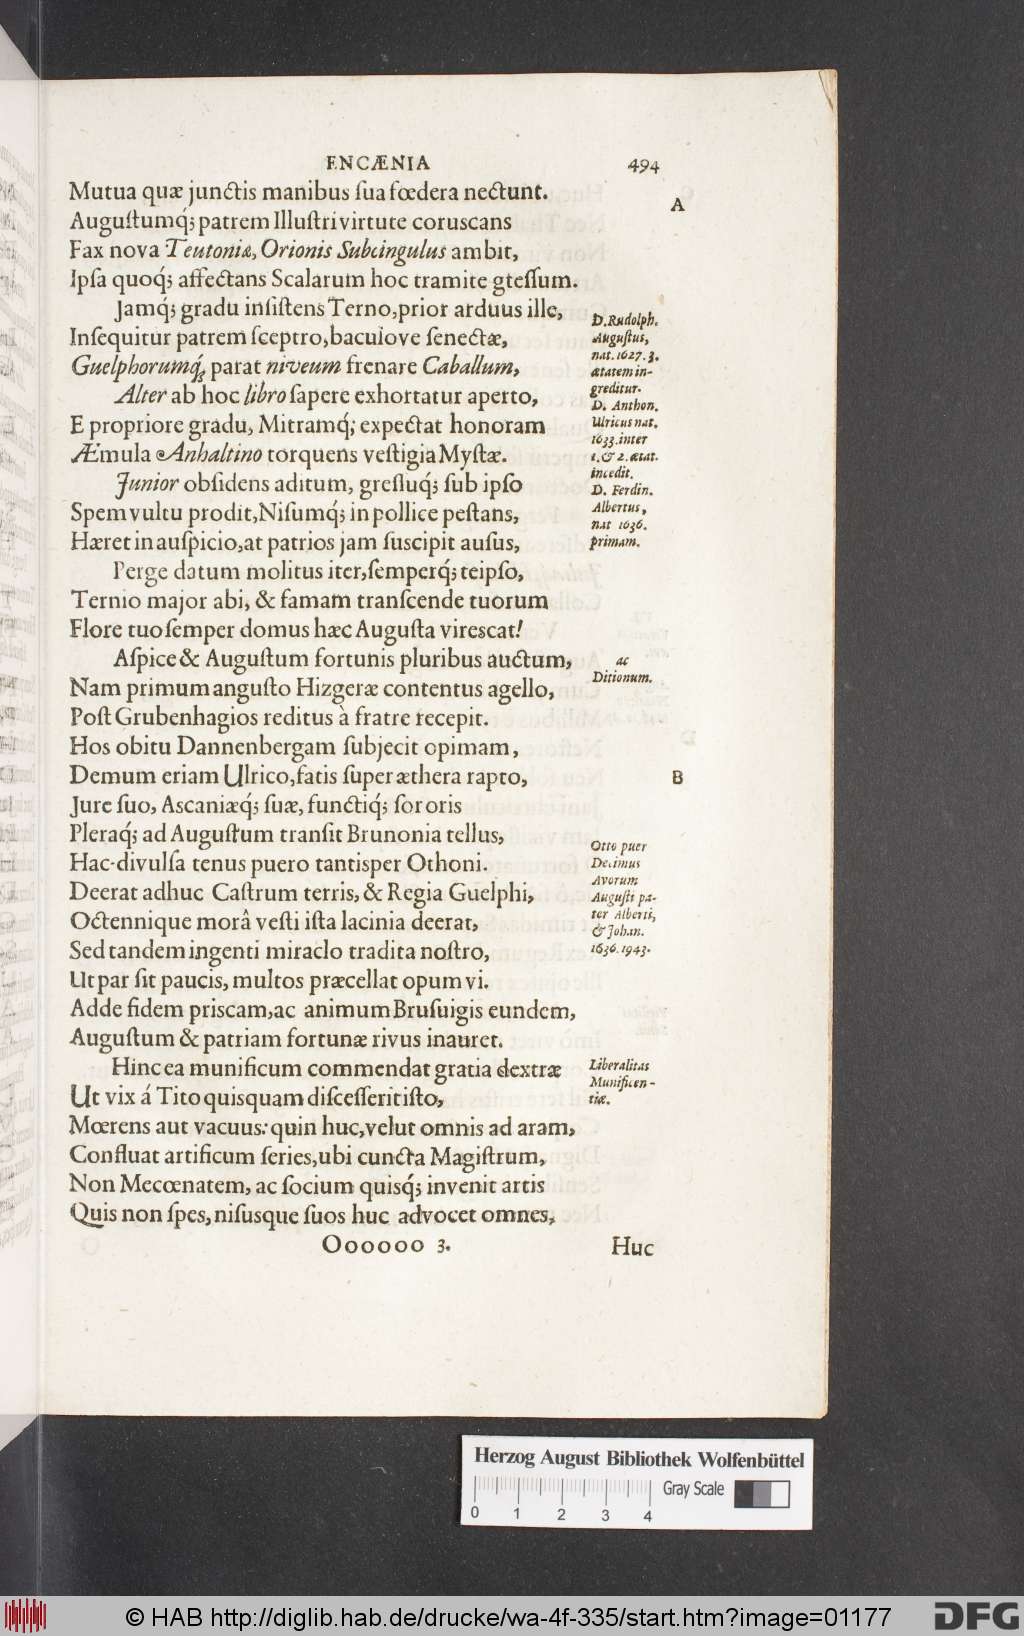 ENCÆNIA 494
Mutua quæ junctis manibus ſua fœdera nectunt.
A
Auguſtumq́; patrem Illuſtri virtute coruscans
Fax nova Teutoniæ, Orionis Subcingulus ambit,
Ipſa quoq́; affectans Scalarum hoc tramite gteſſum.
Jamq́; gradu inſiſtens Terno, prior arduus ille,
Inſequitur patrem ſceptro, baculove ſenectæ,
Guelphorumq́; parat niveum frenare Caballum,
Alter ab hoc libro ſapere exhortatur aperto,
E propriore gradu, Mitramq́; expectat honoram
Æmula Anhaltino torquens veſtigia Myſtæ.
Junior obſidens aditum, greſſuq́; ſub ipſo
Spem vultu prodit, Niſumq́; in pollice peſtans,
Hæret in auſpicio, at patrios jam ſuscipit auſus,
D. Rudolph.
Auguſtus,
nat. 1627. 3.
ætatem in-
greditur.
D. Anthon.
Ulricus nat.
1633. inter
1. & 2. ætat.
incedit.
D. Ferdin.
Albertus,
nat 1636.
primam.
Perge datum molitus iter, ſemperq́; teipſo,
Ternio major abi, & famam tranſcende tuorum
Flore tuo ſemper domus hæc Auguſta virescat!
Aſpice & Auguſtum fortunis pluribus auctum,
ac
Ditionum.
Nam primum anguſto Hizgeræ contentus agello,
Poſt Grubenhagios reditus à fratre recepit.
Hos obitu Dannenbergam ſubjecit opimam,
Demum eriam Ulrico, fatis ſuper æthera rapto,
B
Jure ſuo, Ascaniæq́; ſuæ, functiq́; ſororis
Pleraq́; ad Auguſtum tranſit Brunonia tellus,
Hac-divulſa tenus puero tantisper Othoni.
Deerat adhuc Caſtrum terris, & Regia Guelphi,
Octennique morâ veſti iſta lacinia deerat,
Sed tandem ingenti miraclo tradita noſtro,
Otto puer
Decimus
Avorum
Auguſti pa-
ter Alberti,
& Johan.
1636. 1943.
Ut par ſit paucis, multos præcellat opum vi.
Adde fidem priscam, ac animum Bruſuigis eundem,
Auguſtum & patriam fortunæ rivus inauret.
Hinc ea munificum commendat gratia dextræ
Liberalitas
Munificen-
tiæ.
Ut vix á Tito quisquam diſceſſerit iſto,
Mœrens aut vacuus: quin huc, velut omnis ad aram,
Confluat artificum ſeries, ubi cuncta Magiſtrum,
Non Mecœnatem, ac ſocium quisq́; invenit artis
Quis non ſpes, niſusque ſuos huc advocet omnes,
Oooooo 3. Huc
Herzog August Bibliothek Wolfenbüttel
Gray Scale
0 1 2 3 4
© HAB http://diglib.hab.de/drucke/wa-4f-335/start.htm?image=01177
DFG